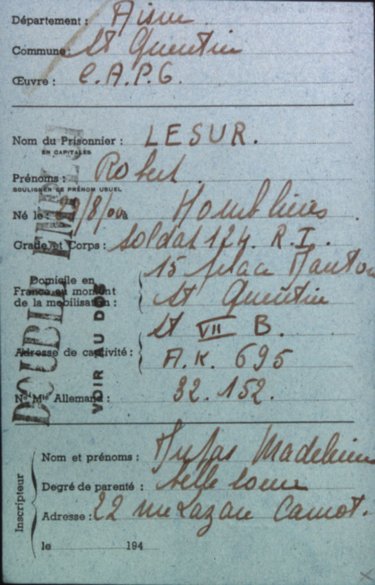 Département : Aisne
Commune : St Quentin
Œuvre : C.A.P.G.
Nom du Prisonnier : LESUR.
EN CAPITALES
Prénoms : Robert
SOULIGNER LE PRÉNOM USUEL
Né le : /8/ Homblières
Grade et Corps : Soldat 124. R.I.
Domicile en
France au moment
de la mobilisation :
15 place
St Quentin
St VII B.
Adresse de captivité :
A.K. 695
No Mle Allemand : 32.152.
DOUBLE
VOIR AU DOS
Inscripteur
Nom et prénoms : Madeleine
Degré de parenté : belle soeur
Adresse : 22 rue Lazare Carnot.
le 194